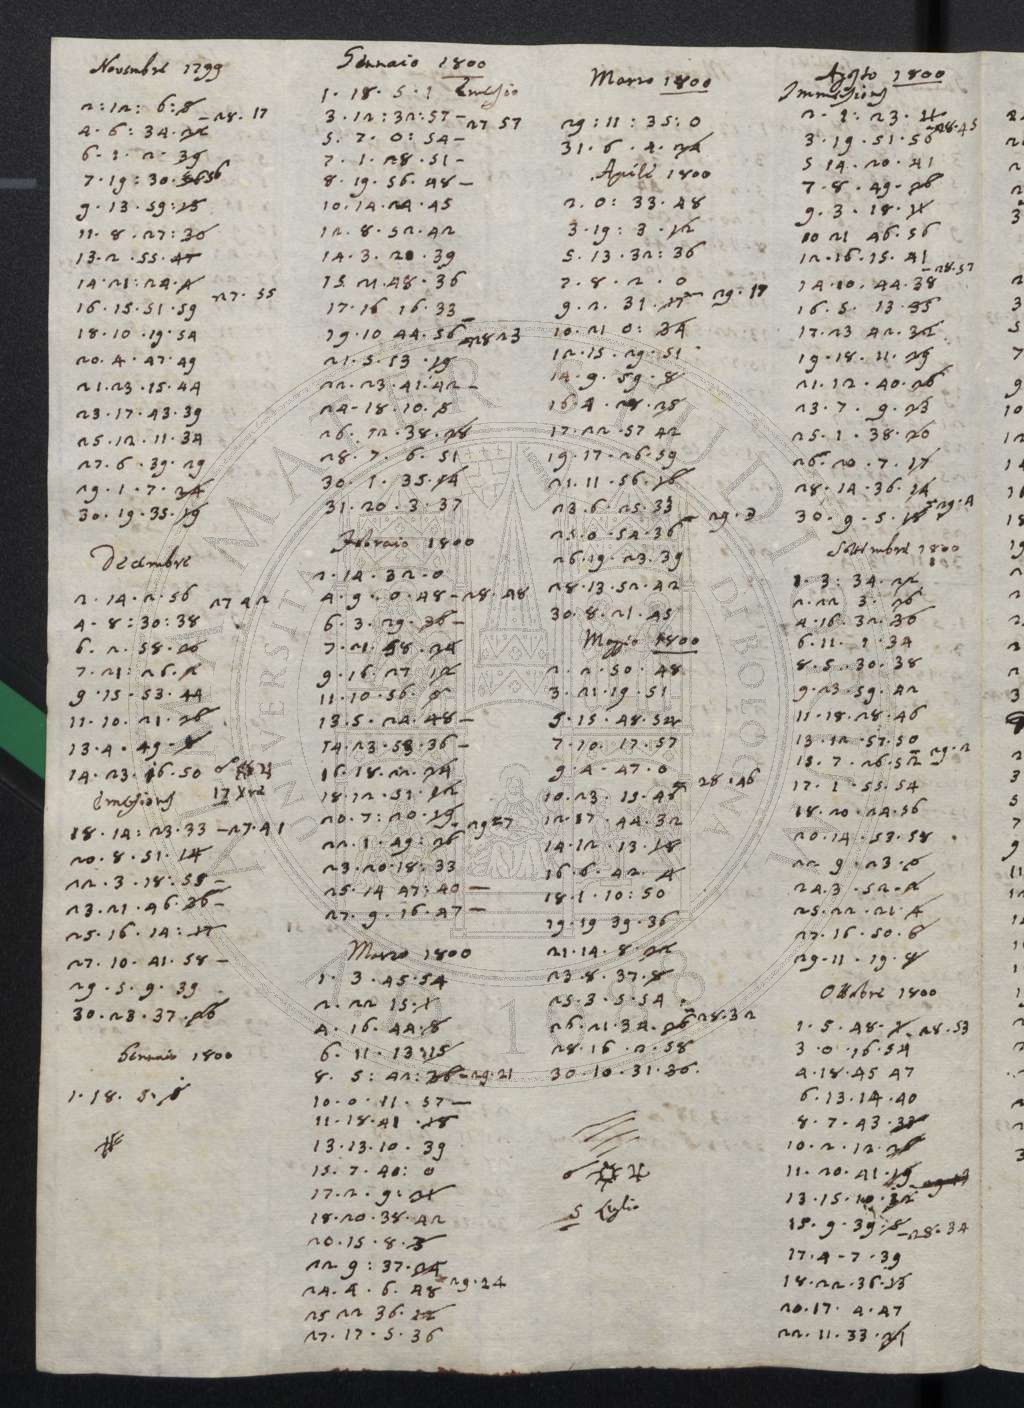 Novembre 1799
2:12: 6:8
-28. 17
4. 6: 34. 22
6. 1. 2. 39
7. 19: 30. 56
9. 13. 59: 15
11. 8. 27: 36
13. 2. 55. 47
14. 21: 24. 4
-27. 55
16. 15. 51. 59
18. 10. 19. 54
20. 4. 47. 49
21. 23. 15. 44
23. 17. 43. 39
25. 12. 11. 34
27. 6. 39. 29
29. 1. 7. 24
30. 19. 35. 19
Decembre
2. 14. 2. 56
27 42
4. 8: 30: 38
6. 2. 58. 20
7. 21: 26. 2
9. 15. 53. 44
11. 10. 21. 26
13. 4. 49. 8
14. 23. 16. 50
Emersions
18. 14: 23. 33 -27. 41
20. 8. 51. 14
22. 3. 18: 55-
23. 21. 46. 36-
25. 16. 14: 17
27. 10. 41. 58-
29. 5. 9. 39
30. 23. 37. 20
Gennaio 1800
1. 18. 5. 8
Gennaio 1800
1. 18. 5. 1 Emersio
3. 12: 32: 57-
27 57
5. 7. 0: 54-
7. 1. 28. 51-
8. 19. 56. 48-
10. 14. 24. 45
12. 8. 52. 42
14. 3. 20. 39
15. 21. 48. 36
17. 16 16. 33
19. 10 44. 56
-28 23
21. 5. 13. 19
22. 23. 41. 42-
24-18. 10. 5
26. 12. 38. 28
28. 7. 6. 51
30. 1. 35. 14
31. 20. 3. 37
Febraio 1800
2. 14. 32. 0
4. 9. 0. 48-28. 48
6. 3. 29. 36-
7. 21. 58. 24
9. 16. 27 12
11. 10. 56. 0
13. 5. 24. 48-
14. 23. 53. 36-
16. 18. 22. 24
18. 12. 51. 12
20. 7: 20. 19
-29 27
22. 1. 49: 26
23. 20. 18: 33
25. 14 47: 40-
27. 9. 16. 47-
Marzo 1800
1. 3. 45. 54
2. 22 15. 1
4. 16. 44. 8
6. 11. 13: 15
8. 5: 42: 36-29. 21
10. 0. 11. 57-
11. 18. 41. 18
13. 13. 10. 39
15. 7. 40: 0
17. 2. 9: 21
18. 20. 38. 42
20. 15. 8. 3
22 9: 37. 24
24. 4. 6. 48 -29. 24
25 22 36. 12
27. 17. 5. 36
Marzo 1800
29: 11: 35: 0
31. 6. 4. 24
Aprile 1800
2. 0: 33. 48
3. 19: 3. 12
5. 13. 32: 36
7. 8. 2. 0
9. 2. 31. 17 - 29. 17
10. 21 0: 34
12. 15. 29. 51
14. 9. 59. 8
16. 4. 28. 25
17. 22. 57 42
19. 17. 26. 59
21. 11. 56. 16
23. 6. 25. 33
- 29. 3
25. 0. 54. 36
26. 19. 23. 39
28. 13. 52. 42
30. 8. 21. 45
Maggio 1800
2. 2. 50. 48
3. 21. 19. 51
5. 15. 48. 54
7. 10. 17. 57
9. 4. 47. 0
10. 23. 15. 48 - 28. 46
12. 17. 44. 32
14. 12. 13. 18
16. 6. 42. 4
18. 1. 10: 50
19. 19 39. 36
21. 14. 8. 22
23. 8. 37. 8
25. 3. 5. 54
26. 21. 34. 26 -28. 32
28. 16. 2. 58
30. 10. 31. 36.
☌ ☼ ♃
5 Luglio
Agosto 1800
Immersions
2. 1: 23. 11
-28. 45
3. 19. 51. 56
5 14. 20. 41
7. 8. 49. 26
9. 3. 18. 11
10 21 46. 56
12. 16. 15. 41
-28. 57
14. 10. 44. 38
16. 5. 13 35
17. 23 42. 32
19. 18. 11. 29
21. 12. 40. 26
23. 7. 9. 23
25. 1. 38. 20
26. 20. 7. 17
28. 14. 36. 14
30. 9. 5. 18 -29. 4
Settembre 1800
1. 3: 34. 22
2. 22 3. 26
4. 16. 32. 30
6. 11. 1. 34
8. 5. 30. 38
9. 23. 59. 42
11. 18. 28. 46
13. 12. 57. 50
15. 7. 26. 52 - 29. 2
17. 1. 55. 54
18. 20. 24. 56
20. 14. 53. 58
22 9. 23. 0
24. 3. 52. 2
25. 22. 21. 4
27. 16. 50. 6
29. 11. 19. 8
Ottobre 1800
1. 5. 48. 1 -28. 53
3. 0. 16. 54
4. 18. 45 47
6. 13. 14. 40
8. 7. 43. 33
10. 2. 12. 26
11. 20. 41. 19
13. 15. 10. 12
15. 9. 39: 5
-28. 34
17. 4-7. 39
18. 22. 36. 13
20. 17. 4. 47
22. 11. 33. 21